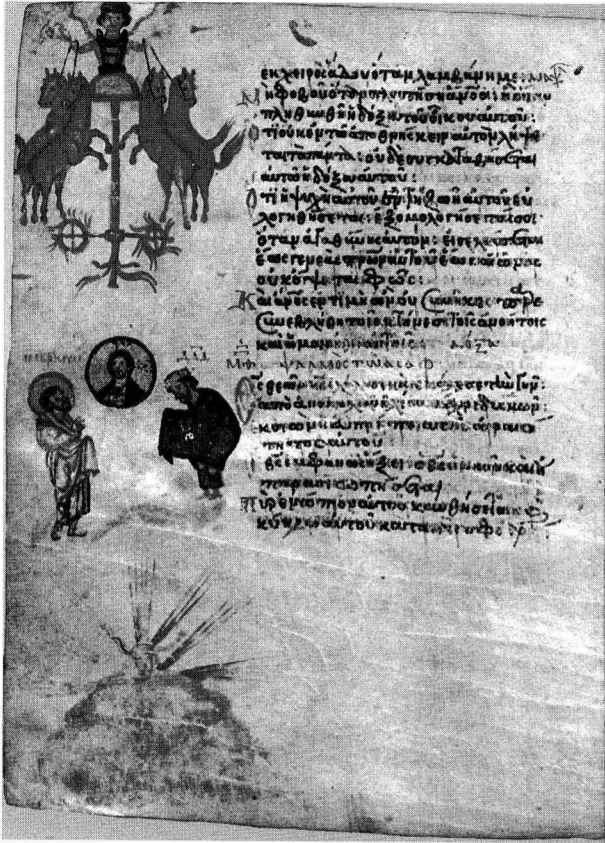 ἐκ χειρὸς ἅδου ὅταν λαμβάνη με:
Μὴ φοβοῦ ὅταν πλουτήση ἄνος: καὶ ὅταν
πληθυνθῆ ἡ δόξα τοῦ οἴκου αὐτοῦ:
Ὅτι οὐκ ἐν τῶ ἀποθνήσκειν αὐτὸν λήψε
ται τὰ πάντα: οὐδὲ συγκαταβήσεται
αὐτῶ ἡ δόξα αὐτοῦ:
Ὅτι ἡ ψυχὴ αὐτοῦ ἐν τῆ ζωῆ αὐτοῦ εὐ
λογηθήσεται: ἐξομολογήσεταί σοι
ὅταν ἀγαθύνης αὐτόν: εἰσελεύσεται
ἕως γενεᾶς πρων αὐτοῦ ἕως αἰῶνος
οὐκ ὄψεται φῶς:
Καὶ ἄνος ἐν τιμῆ ὢν οὐ συνῆκε
συνεβλήθη τοῖς κτήνεσι τοῖς ἀνοήτοις
καὶ ὡμοιώθη αὐτοῖς δόξα
ΜΘ ψαλμὸς τῶ ασαφ
Θς θεῶν κς ἐλάλησεν καὶ ἐκάλεσε τὴν γῆν:
ἀπὸ ἀνατολῶν ἡλίου μέχρι δυσμῶν:
ἐκ σιὼν ἡ εὐπρέπεια τῆς ὡραιό
τητος αὐτοῦ
ὁ θς ἐμφανῶς ἥξει ὁ θς ἡμῶν καὶ οὐ
παρασιωπήσεται
Πῦρ ἐνώπιον αὐτοῦ καυθήσεται καὶ
κύκλω αὐτοῦ καταιγὶς